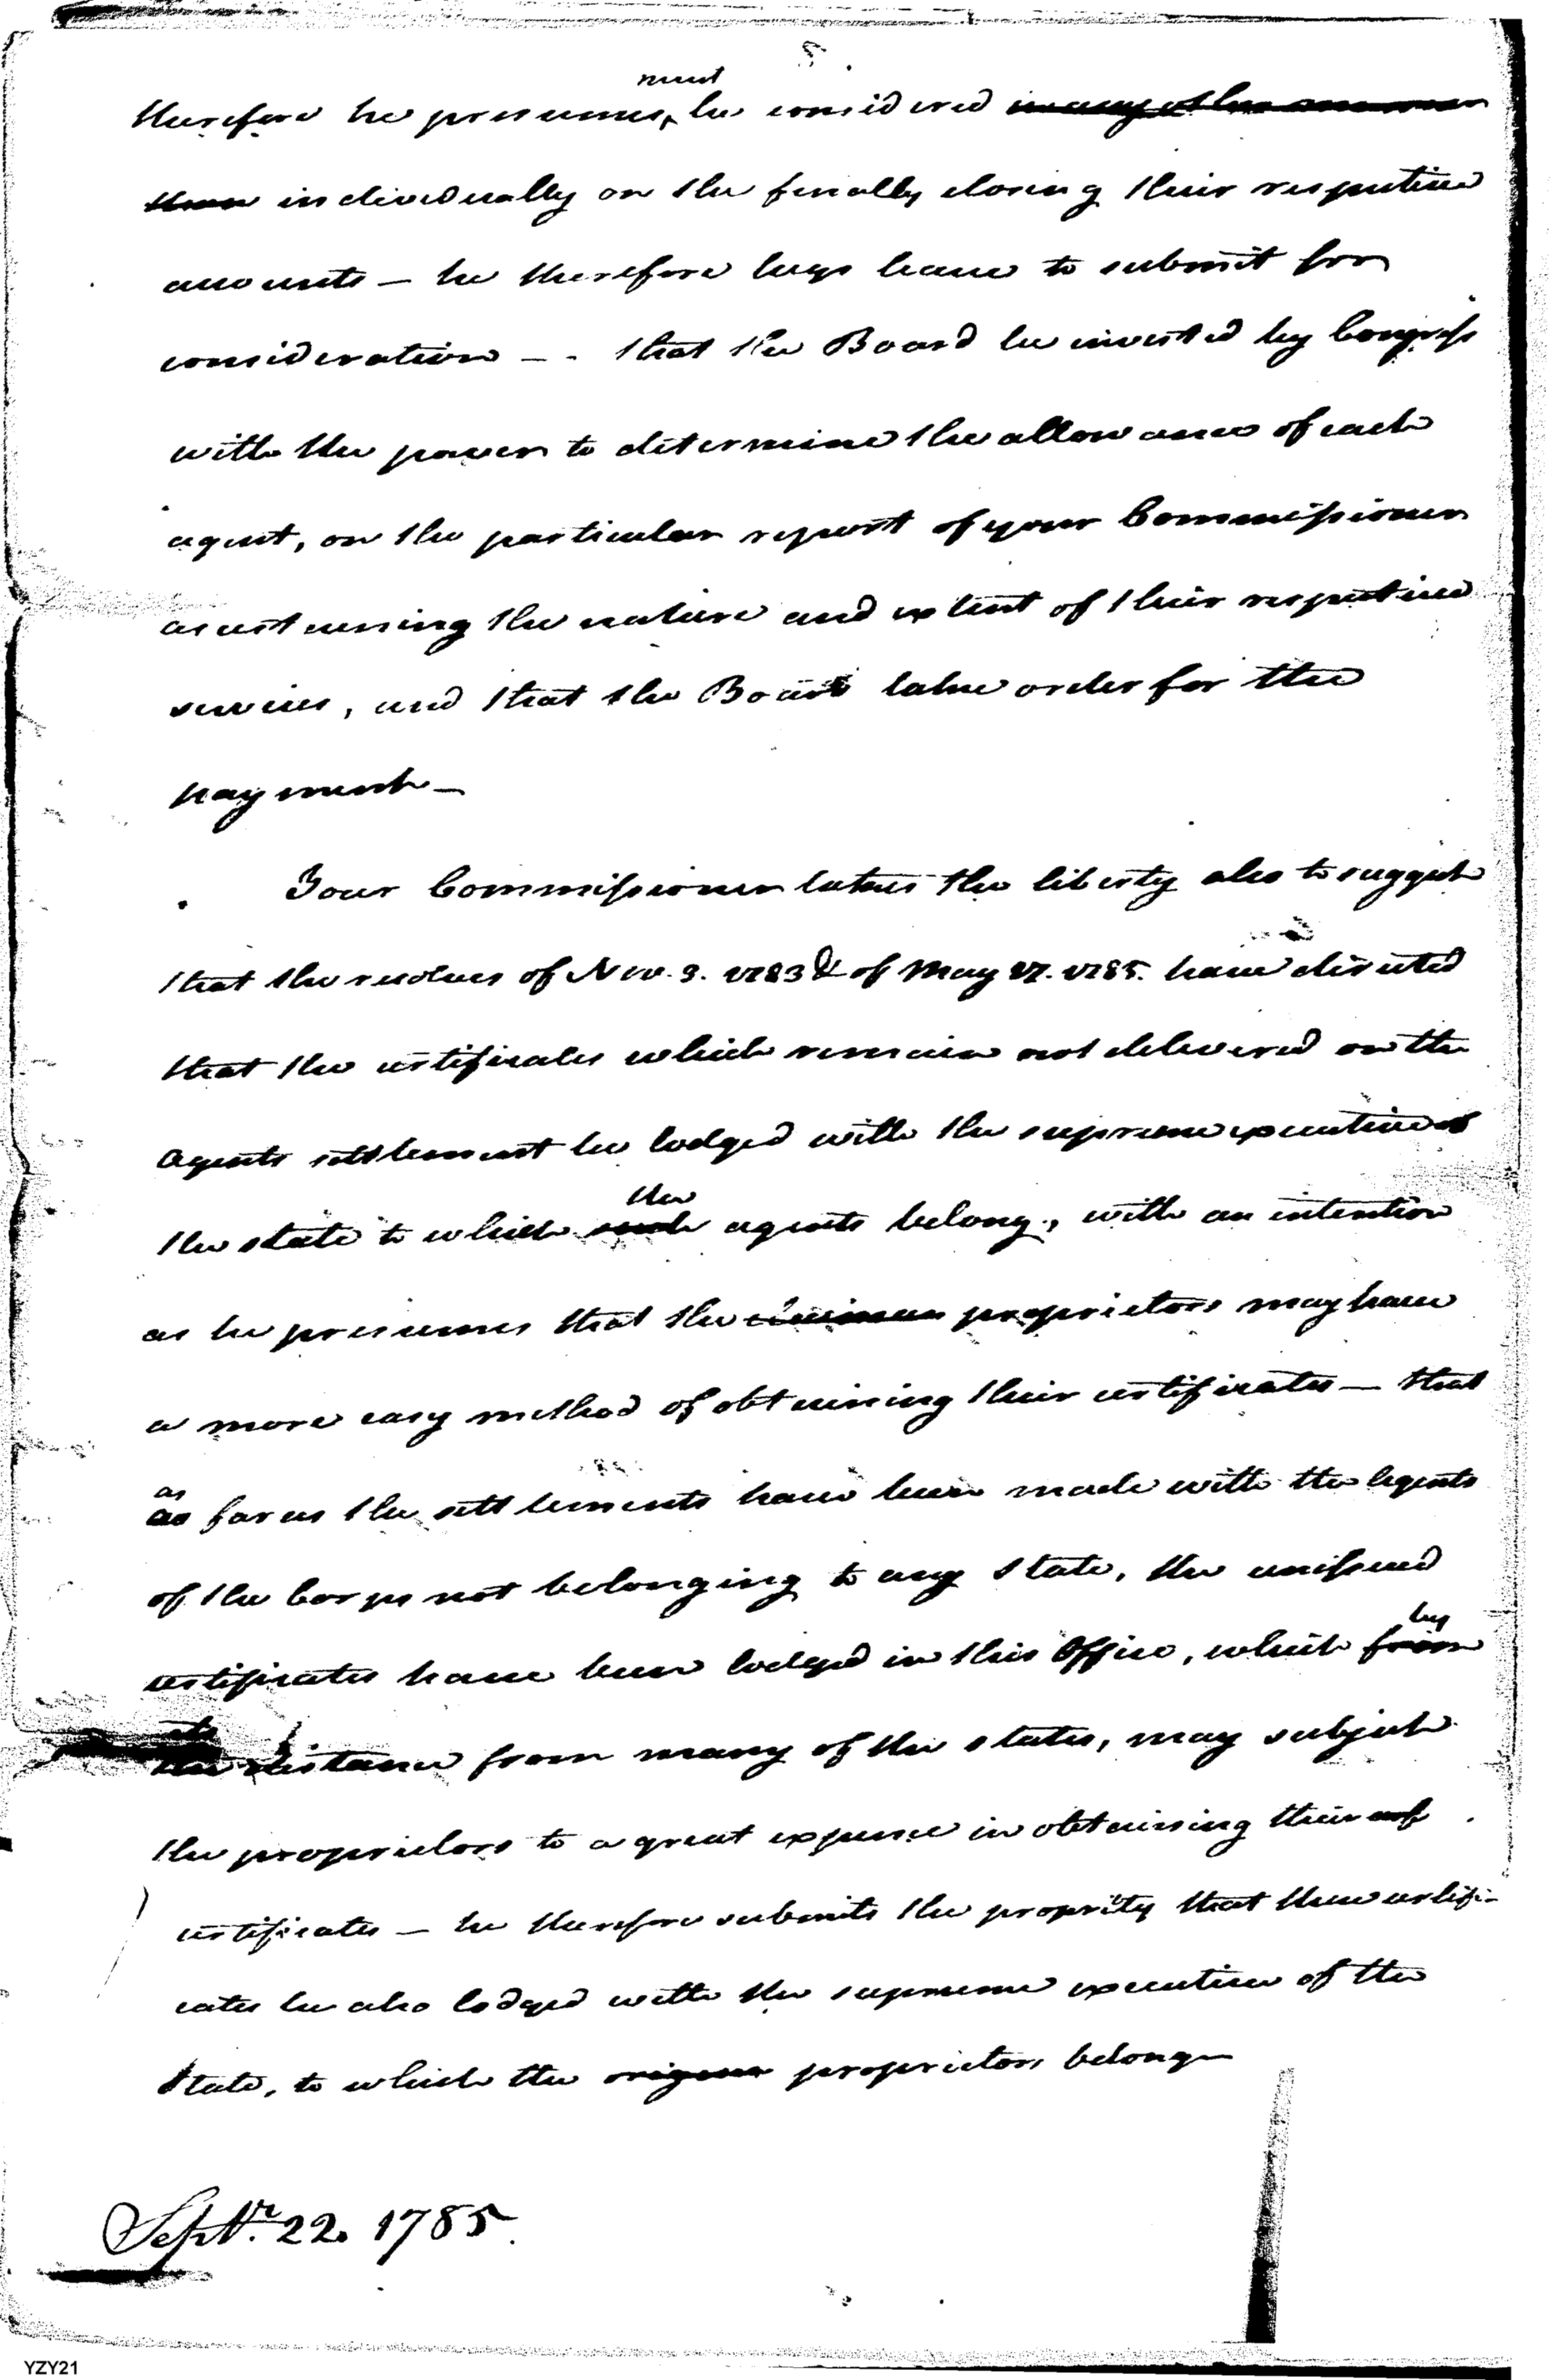 must
therefore he presumes, be considered in any other manner
than individually on the finally closing their respective
accounts — he therefore begs leave to submit for
consideration — - that the Board be invested by Congress
with the power to determine the allowance of each
agent, on the particular report of your Commissioner
ascertaining the nature and extent of their respective
services, and that the Board take order for the
payment —
Your Commissioner takes the liberty also to suggest
that the resolves of Nov. 3. 1783 & of May 27. 1785. have directed
that the certificates which remain not delivered on the
agents settlement be lodged with the supreme executive of
the
the state to which such agents belong, with an intention
as he presumes that the proprietors may have
a more easy method of obtaining their certificates — that
as
as far as the settlements have been made with the Agents
of the Corps not belonging to any State, the unissued
by
certificates have been lodged in this Office, which from
its
the distance from many of the states, may subject
the proprietors to a great expence in obtaining their
certificates — he therefore submits the propriety that these certifi-
cates be also lodged with the supreme executive of the
State, to which the proprietors belong
Septr. 22. 1785.
YZY21